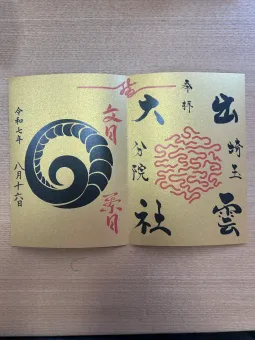 奉拝
出雲
大社
埼玉
分院
文月
葉月
令和七年
八月十六日